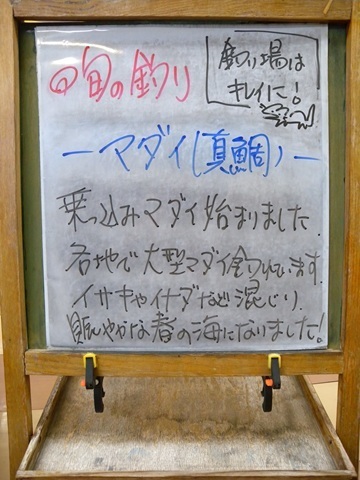 旬の釣り
釣り場は
キレイに!
ーマダイ(真鯛)ー
乗っ込みマダイ始まりました
各地で大型マダイ釣れています.
イサキやイナダなど混じり.
賑やかな春の海になりました!